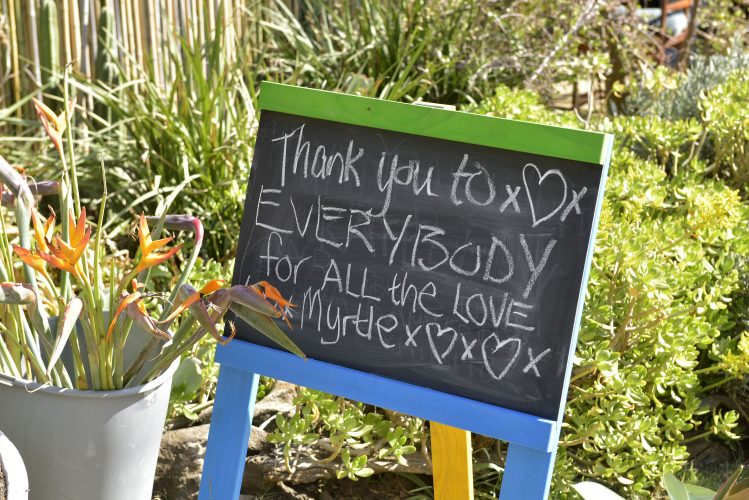 Thank you to x♡x
EVERYBODY
for ALL the LOVE
Myrtle x♡x♡x